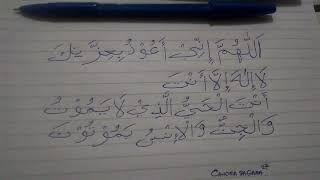 اَللّٰهُمَّ إِنِّيْ أَعُوْذُ بِعِزَّتِكَ
لَا إِلٰهَ إِلَّا أَنْتَ
أَنْتَ الْحَيُّ الَّذِيْ لَا يَمُوْتُ
وَالْجِنُّ وَالْإِنْسُ يَمُوْتُوْنَ
CANDRA SAGARA